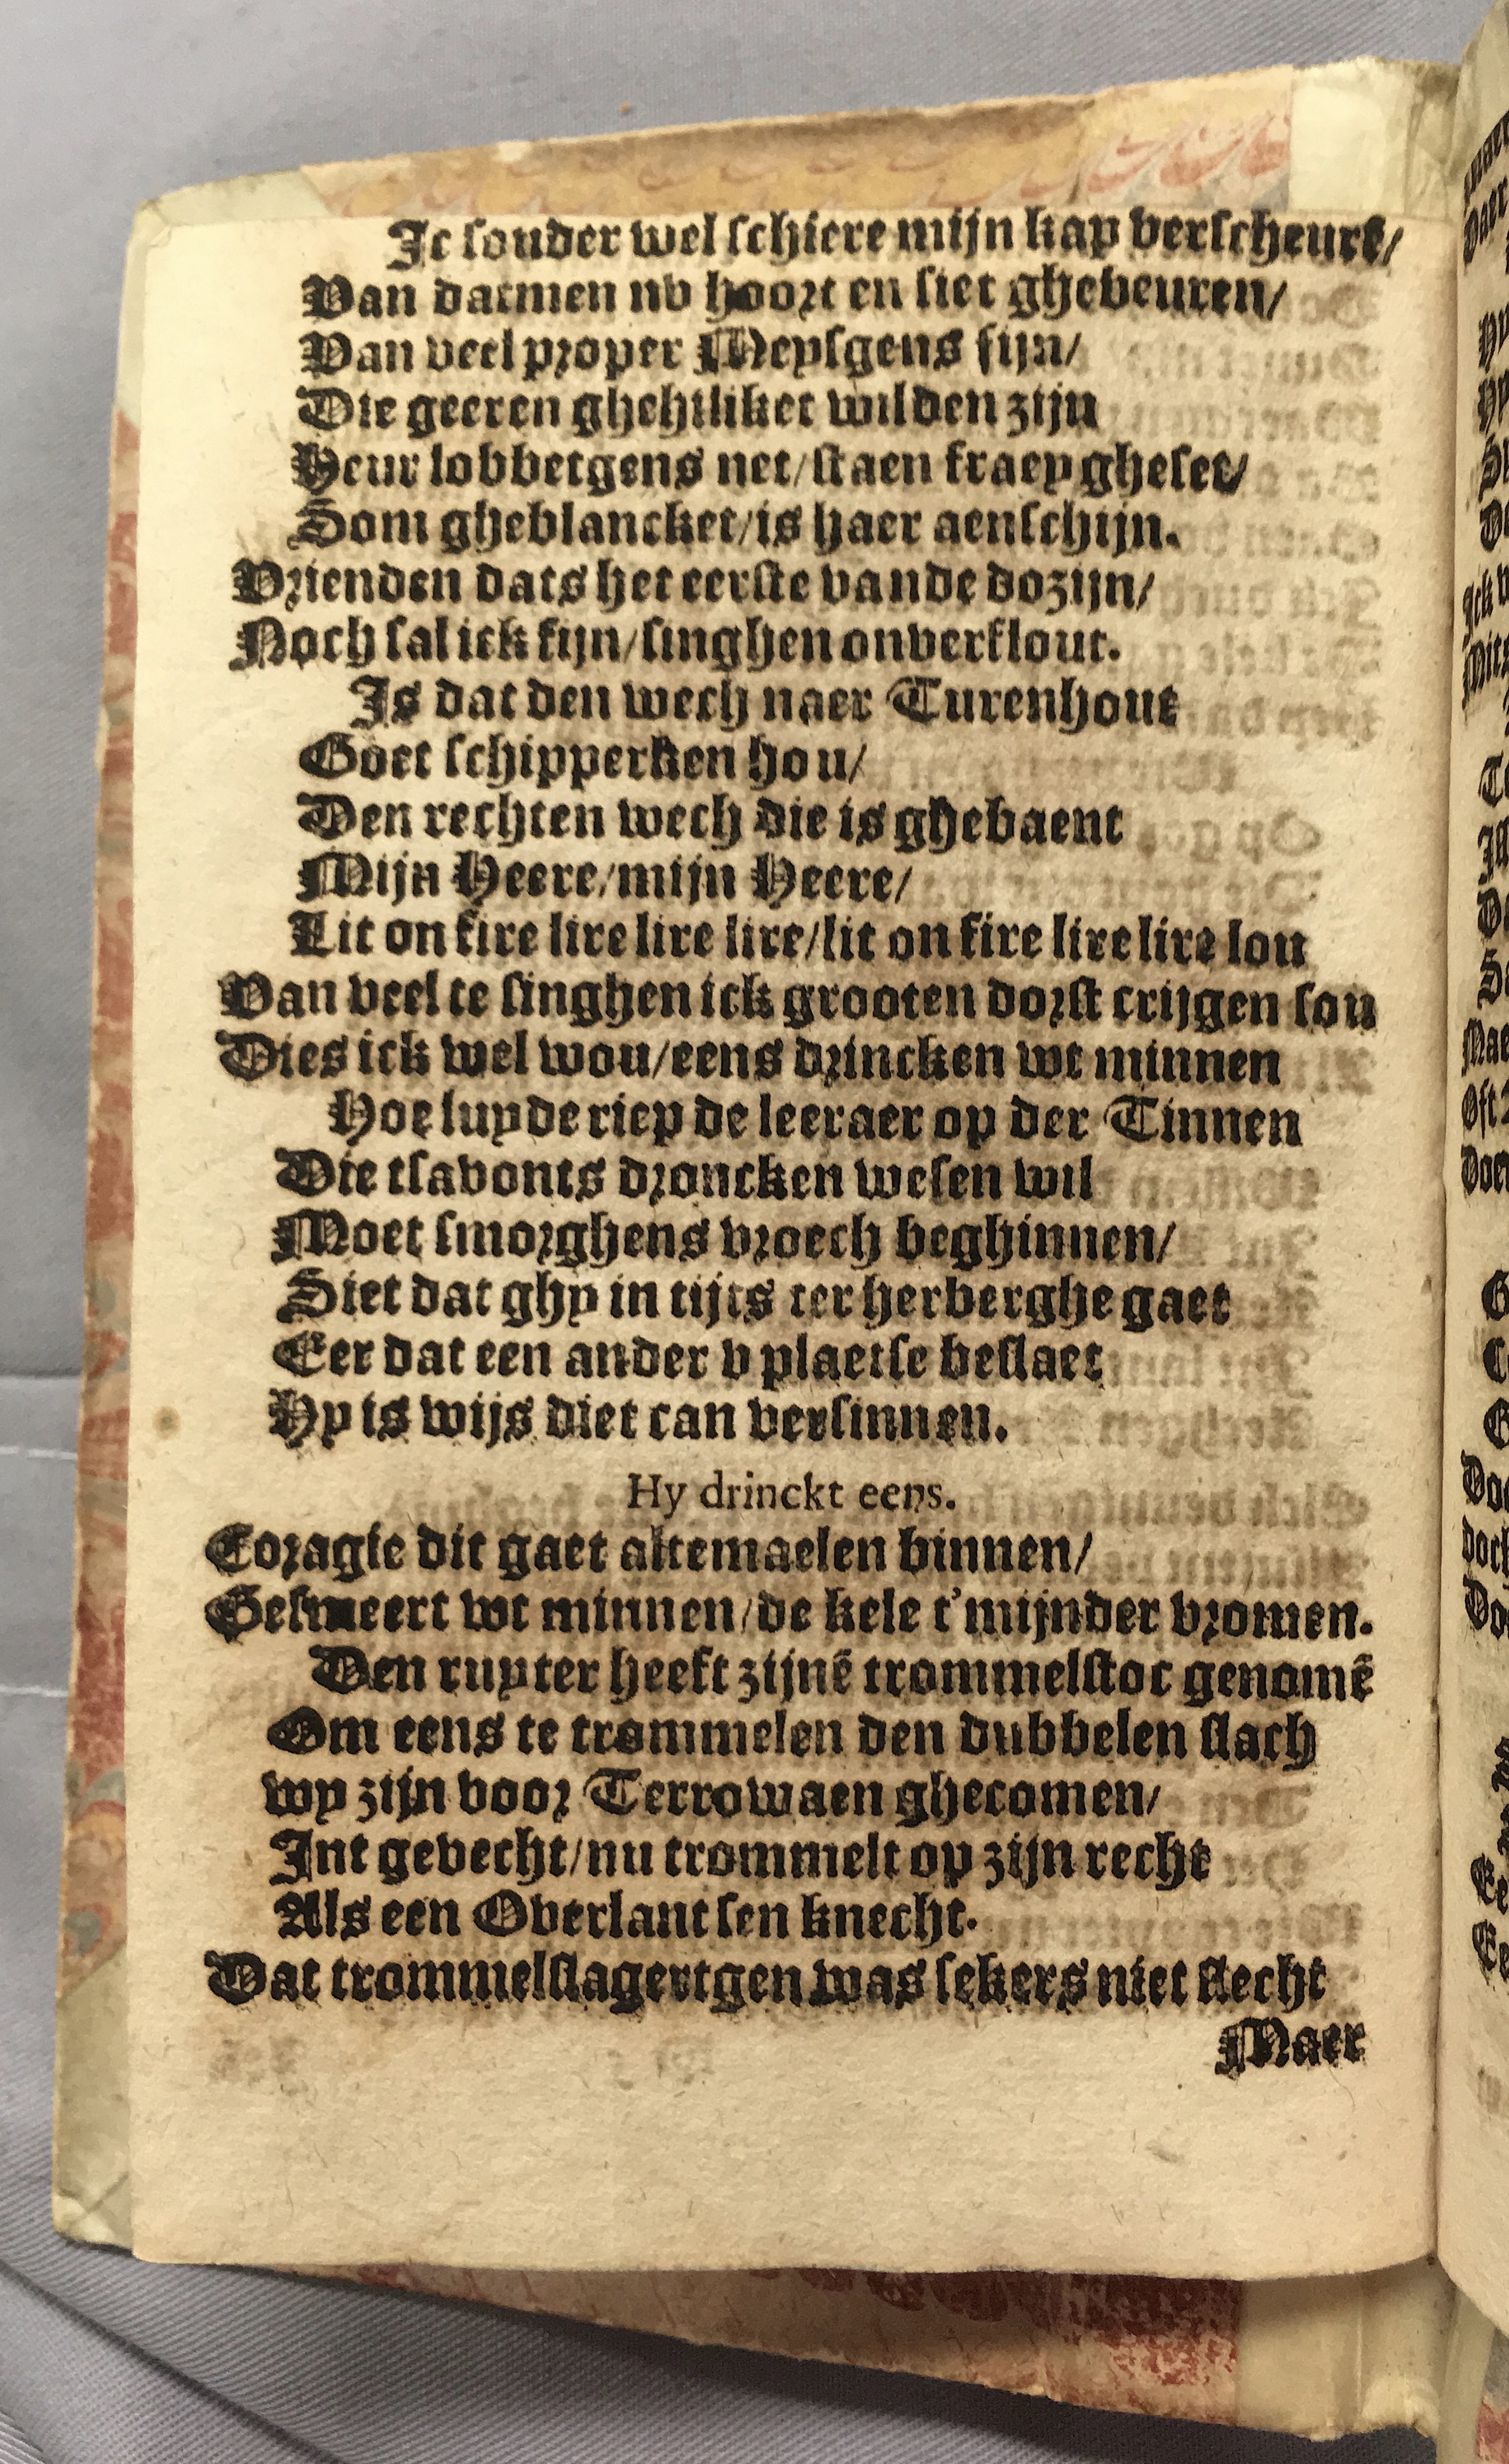 Ic souder wel schiere mijn kap verscheurē/
Van datmen nv hoort en siet ghebeuren/
Van veel proper Meysgens fijn/
Die geeren ghehiliket wilden zijn
Heur lobbetgens net/staen fraey gheset/
Som gheblancket/is haer aenschijn.
Vrienden dats het eerste vande dozijn/
Noch sal ick fijn/singhen onverflout.
Is dat den wech naer Turenhout
Goet schipperken hou/
Den rechten wech die is ghebaent
Mijn Heere/mijn Heere/
Lit on fire lire lire lire/lit on fire lire lire lou
Van veel te singhen ick grooten dorst crijgen sou
Dies ick wel wou/eens drincken wt minnen
Hoe luyde riep de leeraer op der Tinnen
Die tsavonts droncken wesen wil
Moet smorghens vroech beghinnen/
Siet dat ghy in tijts ter herberghe gaet
Eer dat een ander v plaetse beslaet
Hy is wijs diet can versinnen.
Hy drinckt eens.
Coragie dit gaet altemaelen binnen/
Gesmeert wt minnen/de kele t'mijnder vromen.
Den ruyter heeft zijnē trommelstoc genomē
Om eens te trommelen den dubbelen slach
wy zijn voor Terrowaen ghecomen/
Int gevecht/nu trommelt op zijn recht
Als een Overlantsen knecht.
Dat trommelslagertgen was sekers niet slecht
Maer